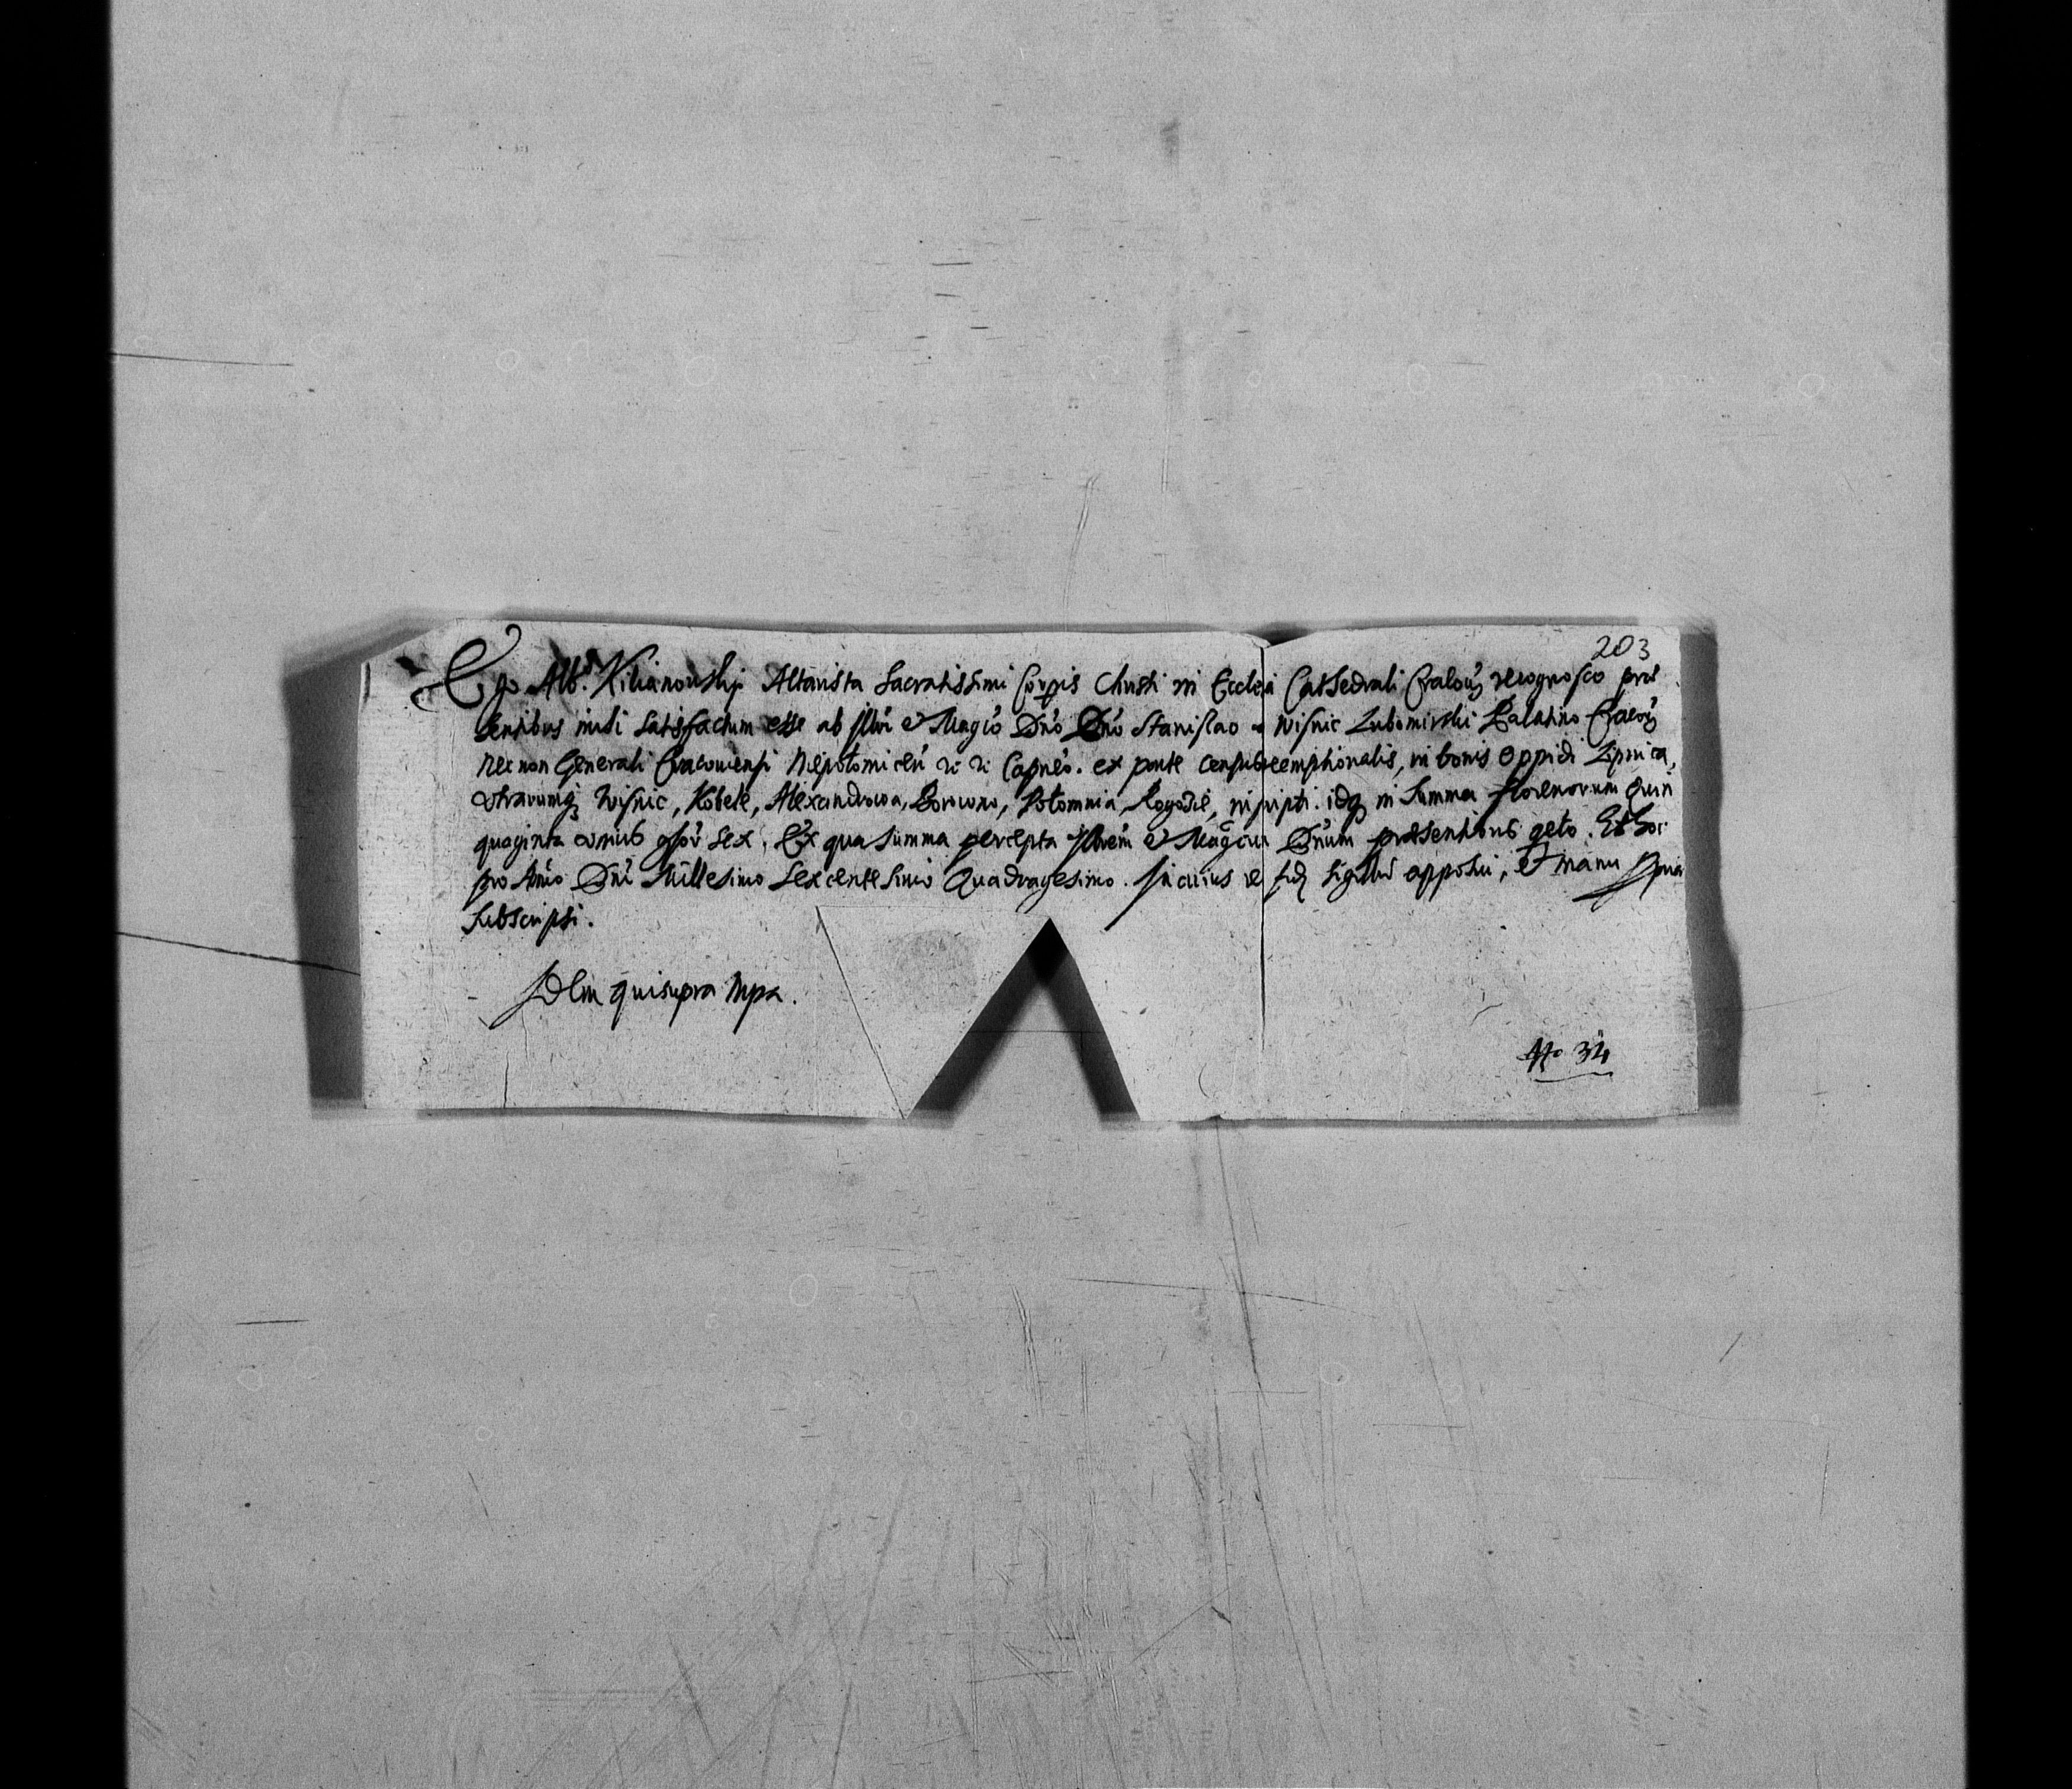 203
Ego Alb. Kilianowskj Altarista Sacratissimi Corpis Christi in Ecclesia Cathedrali Cracou recognosco præ
sentibus mihi satisfactum esse ab Illmi et Magco Dno Dno Stanislao a Wisnic Lubomirski Palatino Cracou
necnon Generali Cracouiensi Niepolomicen Capneo. ex parte census reemptionalis, in bonis Oppidi Lipnica,
vtrarumq Wisnic, Kobele, Alexandrowa, Borowno, Polomnia, Rogozie, inscripti. idq in Summa florenorum Quin
quaginta vnius gsor sex. Ex qua Summa percepta Illrem et Magcum Dnum præsentibus qeto. Et hoc
pro Anno Dni Millesimo Sexcentesimo Quadragesimo. In cuius rei fidē sigillū apposui, et manu ppria
subscripsi.
Idem qui supra Mpa.
No 34